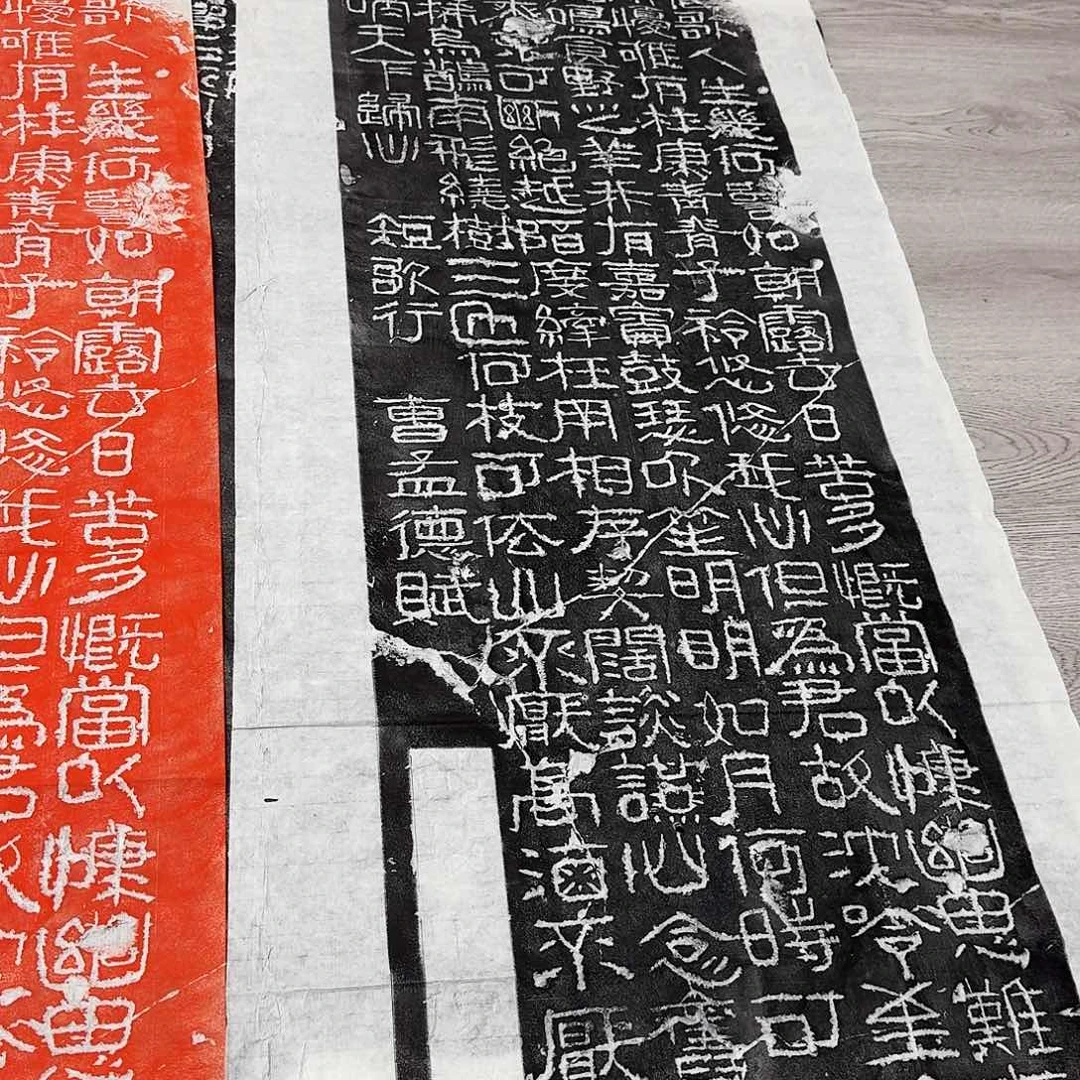 歌人生幾何譬如朝露去日苦多慨當以慷思難
唯有杜康青青子衿悠悠我心但為君故沈吟至
鳴食野之苹我有嘉賓鼓瑟吹笙明明如月何時可
可斷絕越陌度阡枉用相存契闊談讌心念舊
稀烏鵲南飛繞樹三匝何枝可依山不厭高海不厭
哺天下歸心 短歌行 曹孟德賦
歌人生幾何譬如朝露去日苦多慨當以慷思
唯有杜康青青子衿悠悠我心但為君故